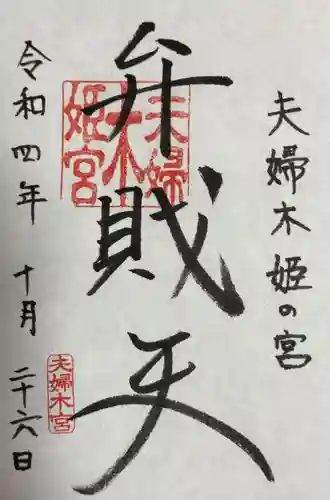 夫婦木姫の宮
弁財天
令和四年 十月 二十六日
夫婦
木
姫宮
夫婦木宮